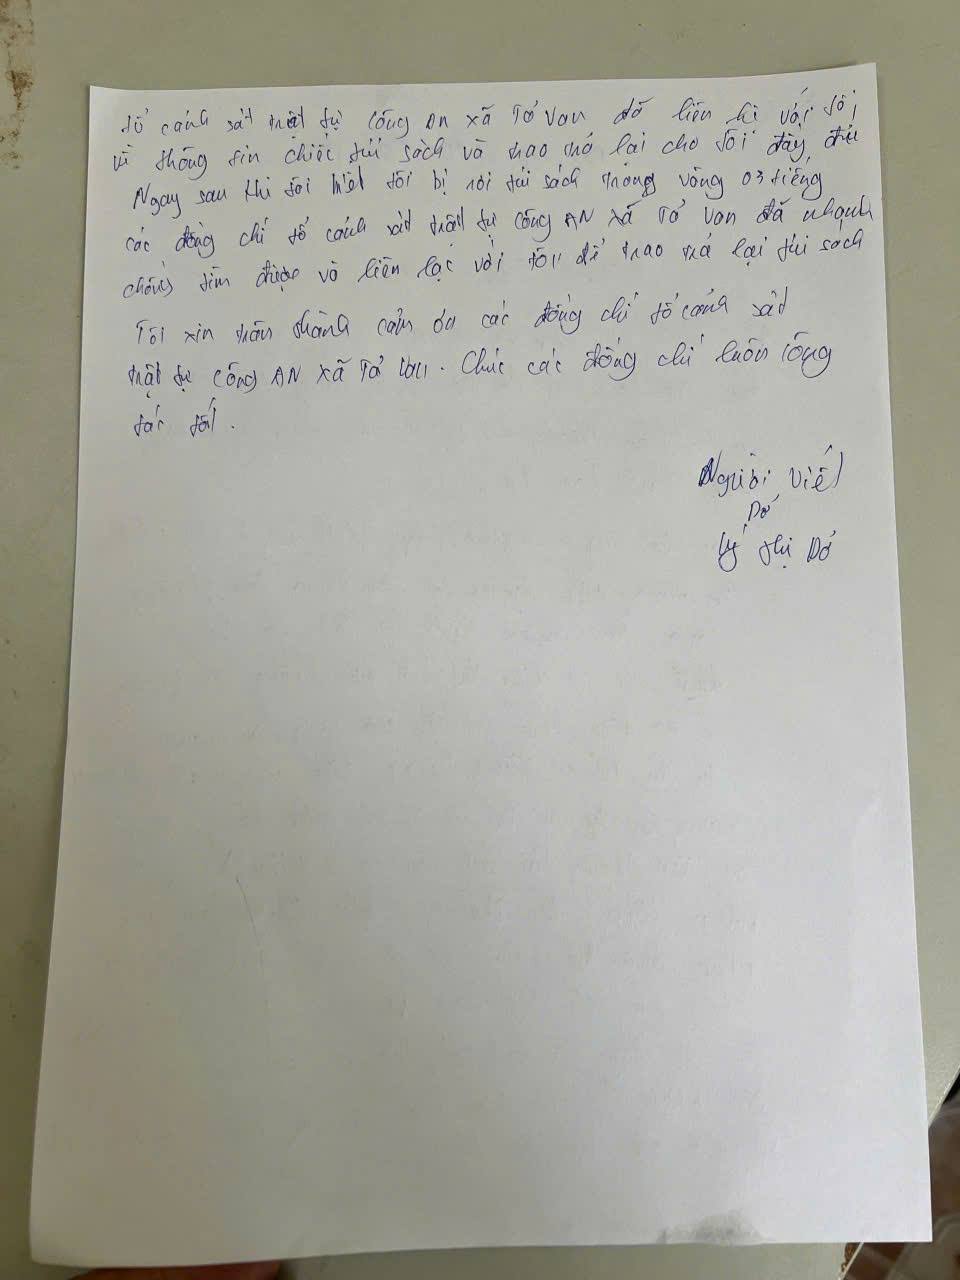 tổ cảnh sát trật tự Công An xã Tả Van đã liên hệ với tôi
về thông tin chiếc túi sách và trao trả lại cho tôi đầy đủ
Ngay sau khi tôi bị rơi túi sách trong vòng 03 tiếng
các đồng chí tổ cảnh sát trật tự Công AN xã Tả Van đã nhanh
chóng tìm được và liên lạc với tôi để trao trả lại túi sách
Tôi xin trân thành cảm ơn các đồng chí tổ cảnh sát
trật tự Công AN xã Tả Van. Chúc các đồng chí luôn công
tác tốt.
Người viết
Dở
Lý thị Dở